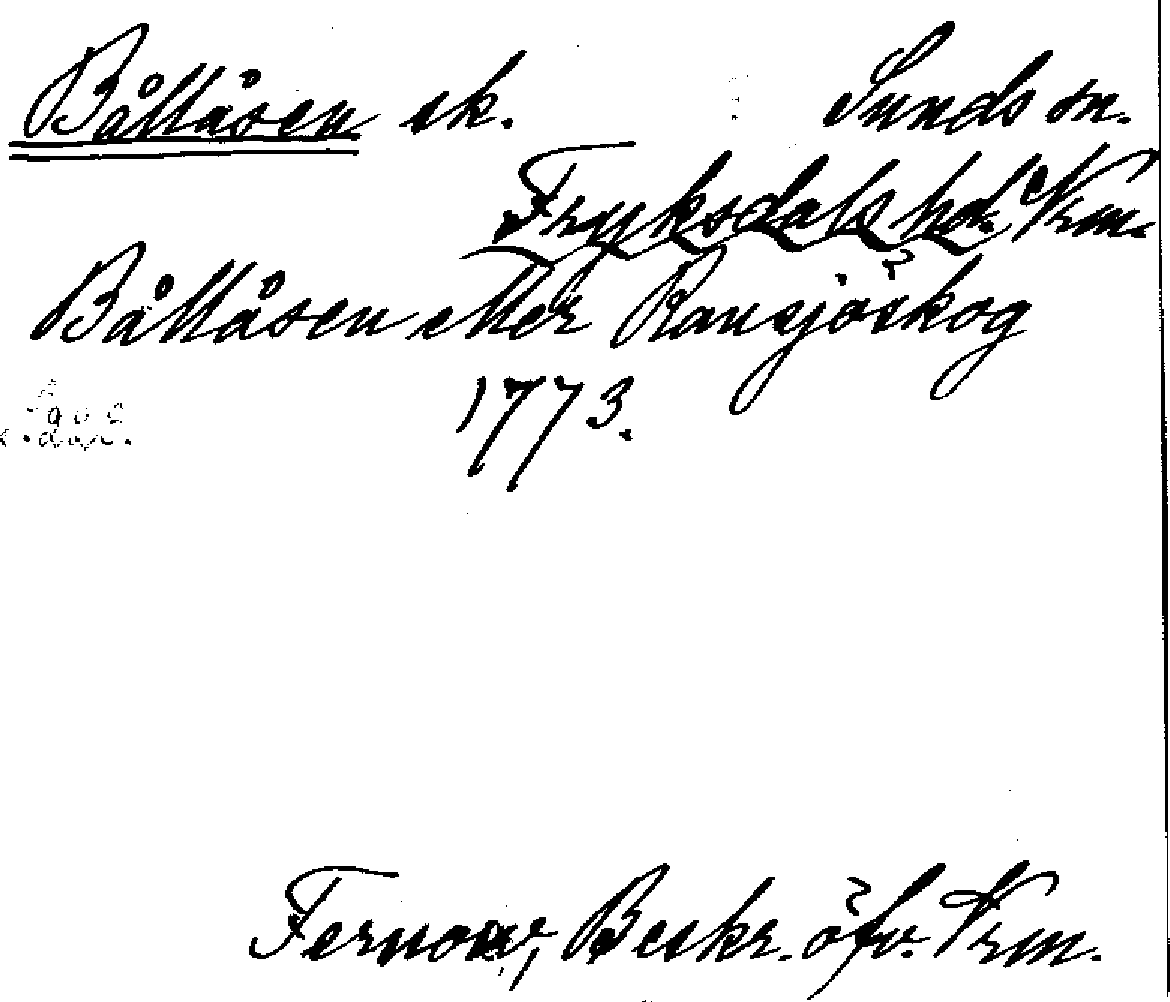 Båttåsen sk. Sunds sn.
Fryksdals hd. Vrm.
Båttåsen eller Ransjöskog
1773.
Fernow, Beskr. öfv. Vrm.